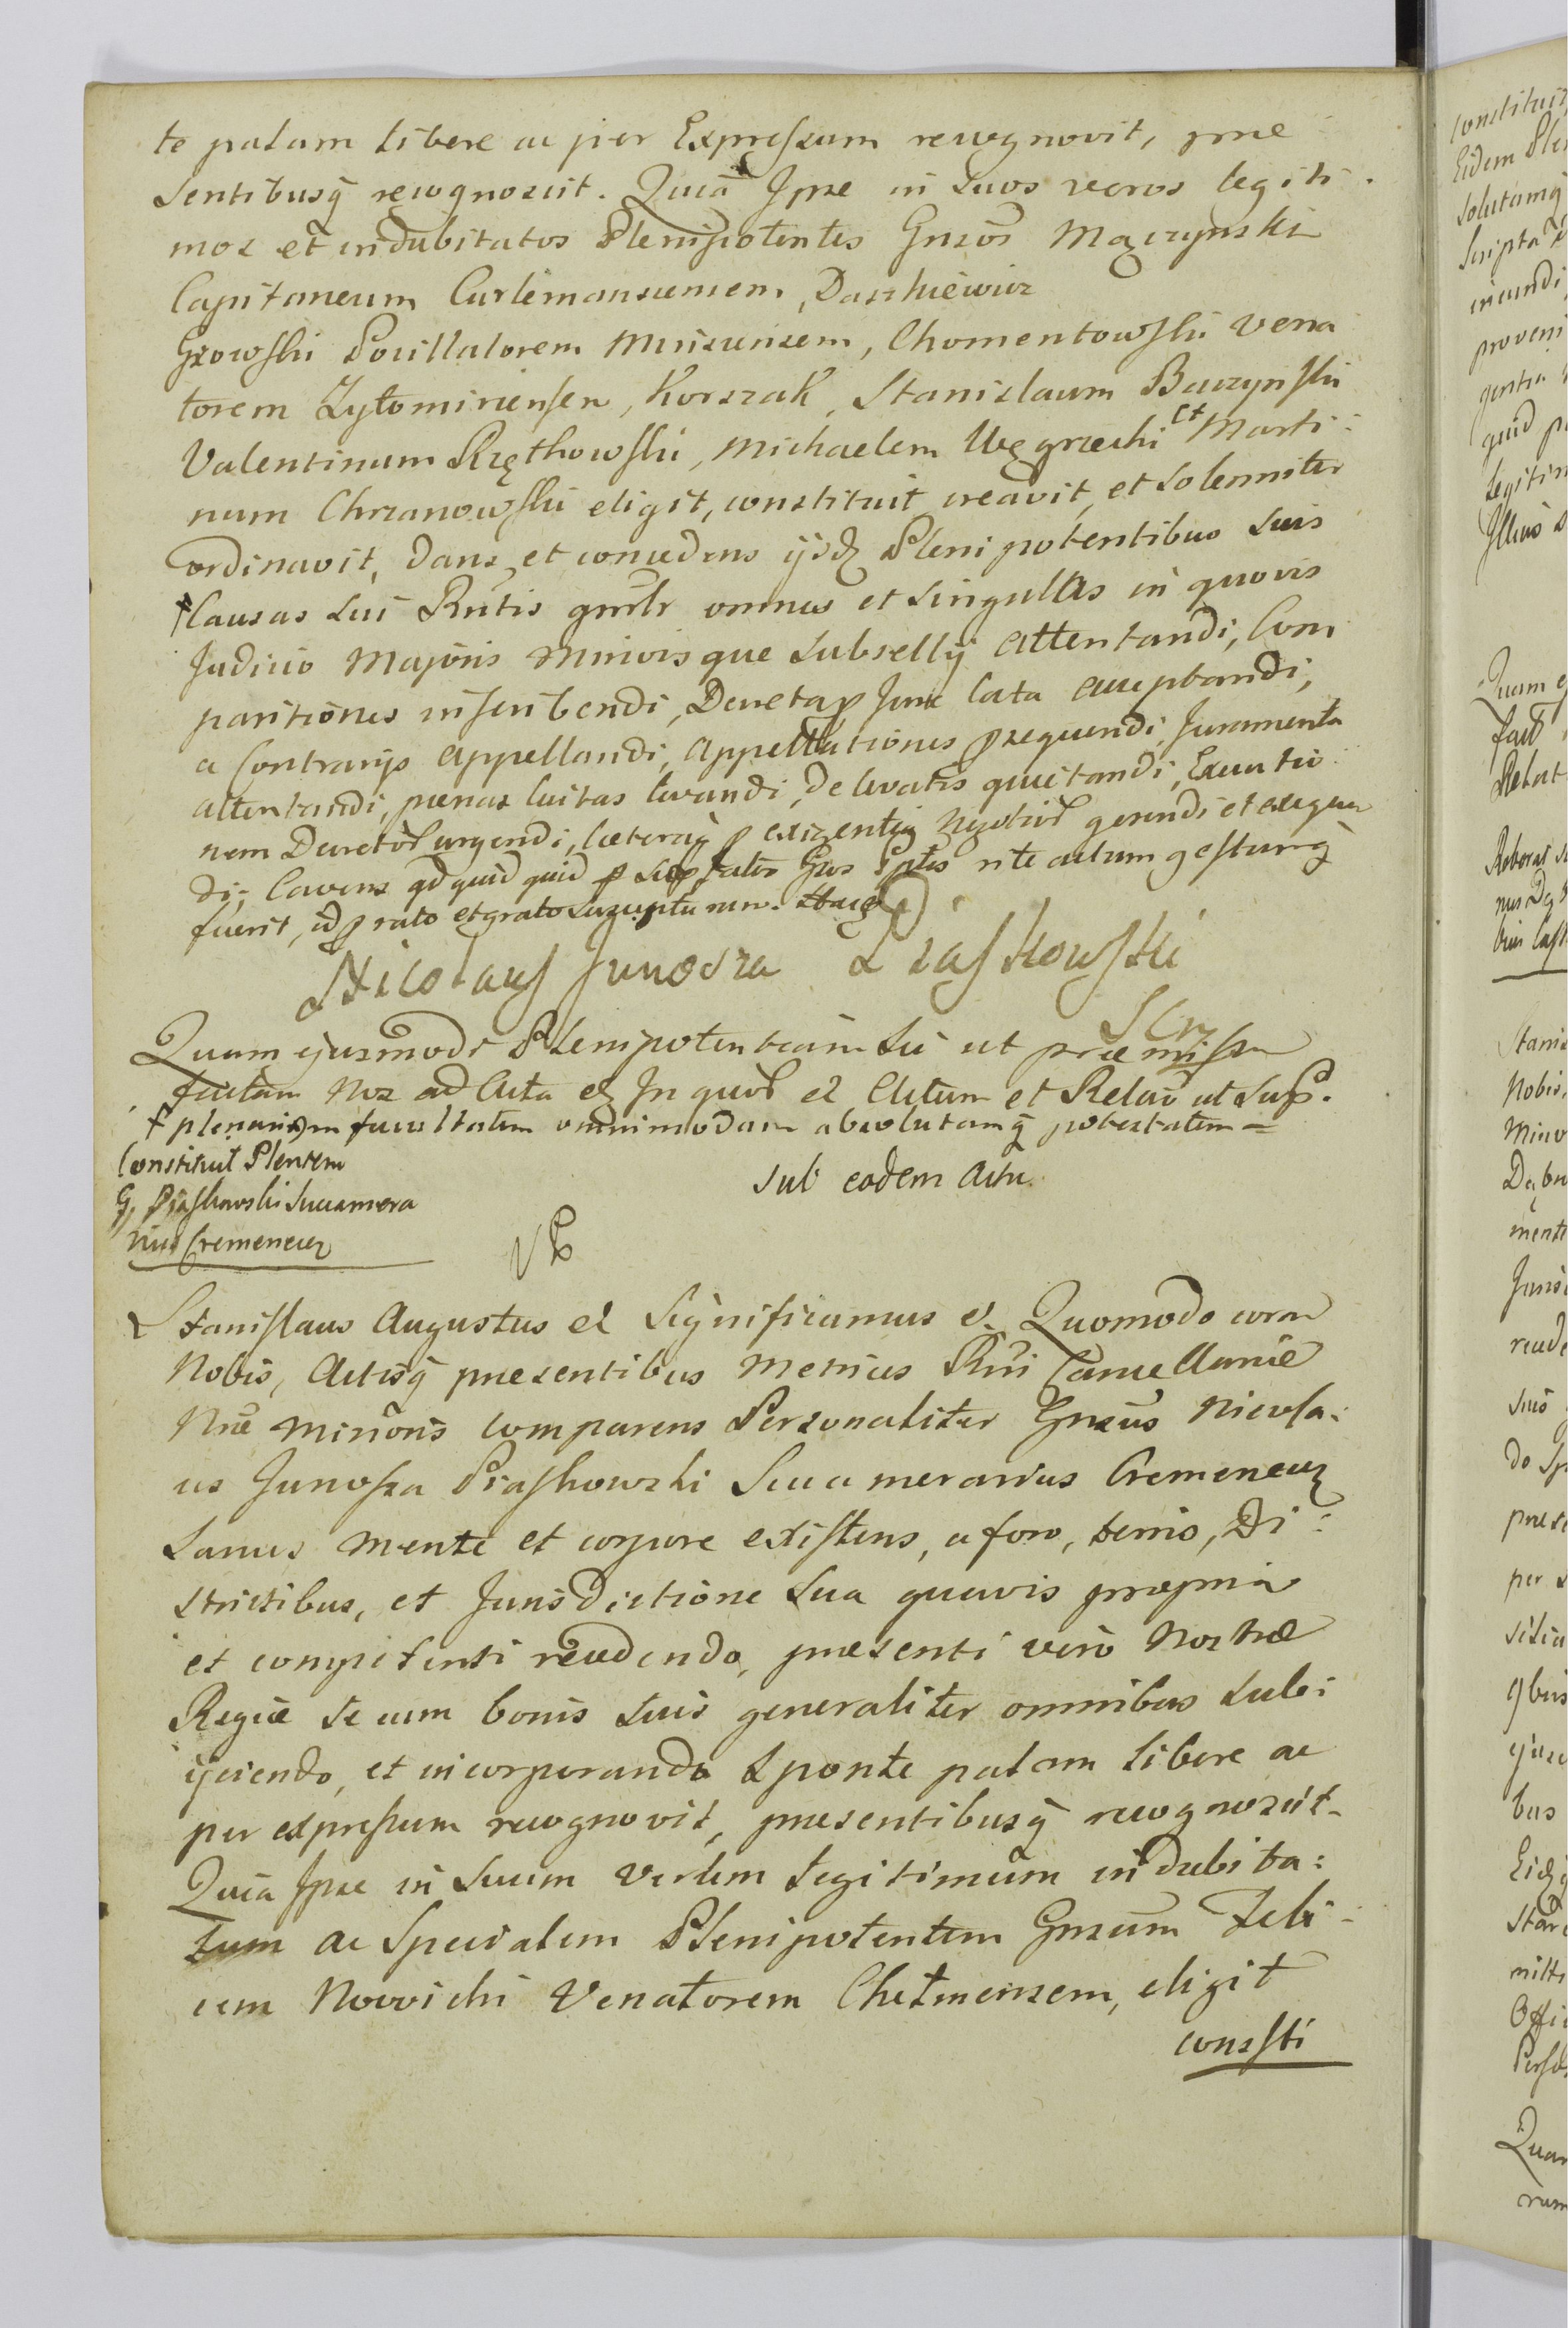 te palam libere ac per Expressum recognovit, prae
sentibusq̃ recognoscit. Quia Ipse in suos veros legiti.
mos et indubitatos Plenipotentes Gnsos Mączynski
Capitaneum Curlimanscensem, Daszkiewicz
Gzowski Pocillatorem Mscisensem, Chomentowski Vena
torem Zytomiriensem, Korszak, Stanislaum Baczynski
Valentinum Rzętkowski, Michaelem Węgrzecki et Marti:
num Chrzanowski eligit, constituit creavit, et solemniter
ordinavit, dans et concedens ijsdz Plenipotentibus suis
† Causas sui Rntis gnrlr omnes et singullas in quovis
Judicio Majoris Minoris que Subsellij attentandi, Com
paritiones inscribendi, Decreta p Jure lata acceptandi,
a Contrarijs appellandi, appellationes prsequendi, Juramenta
attentandi, paenas luitas levandi, de levatis quietandi, Executio
nem Decretor urgendi, caeteraq̃ p exigentia Negotior gerendi et exequen
di; Cavens qd quid quid p Suprafatos Gnos Pptes rite actum gestumq̃
fuerit, id p rato et grato suscepturum.
Nicolaus Junosza Piaskowski
SCrz
Quam ejusmodi Plenipotentiam sic ut praemissu
factam Nos ad Acta et In quor et Actum et Relaō ut Supp.
† plenariam facultatem omnimodam absolutamq̃ potestatem =
Constituit Plentem
G. Piaskowski Succamera
rius Cremenecz
Sub eodem Actu.
Stanislaus Augustus et Significamus et. Quomodo coram
Nobis, Actisq̃ praesentibus Metrices Rni Cancellariae
Nrae Minoris comparens Personaliter Gnsus Nicola:
us Junosza Piaskowski Succamerarius Cremenecz
Sanus mente et corpore existens, a foro, terris, Di:
strictibus, et Jurisdictione sua quavis propria
et competenti recedendo, praesenti vero Nostrae
Regiae se cum bonis suis generaliter omnibus subi
ijciendo, et incorporando Sponte palam libere ac
per expressum recognovit, praesentibusq̃ recognoscit.
Quia Ipse in suum verum legitimum indubita:
tum ac Specialem Plenipotentem Gnsum Feli:
cem Nowicki Venatorem Chelmensem, eligit
consti